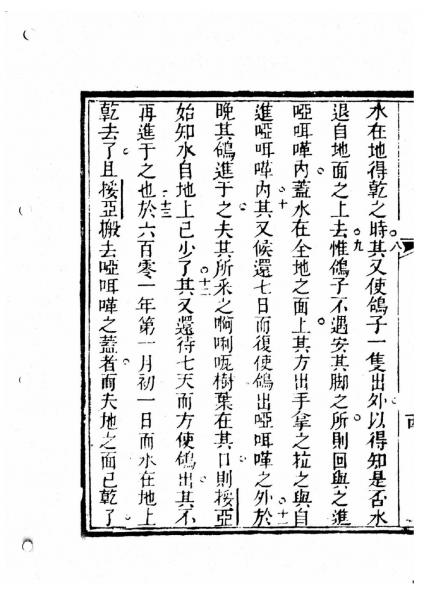 水在地得乾之時其又使鴿子一隻出外以得知是否水
八
退自地面之上去惟鴿子不遇安其脚之所則回與之進
九
啞咡嗶內蓋水在全地之面上其方出手拿之拉之與自
進啞咡嗶內其又候還七日而復使鴿出啞咡嗶之外於
十
十一
晚其鴿進于之夫其所釆之啊唎㖠樹葉在其口則挼亞
始知水自地上已少了其又還待七天而方使鴿出其不
十二
再進于之也於六百零一年第一月初一日而水在地上
十三
乾去了且挼亞搬去啞咡嗶之蓋者而夫地之面已乾了